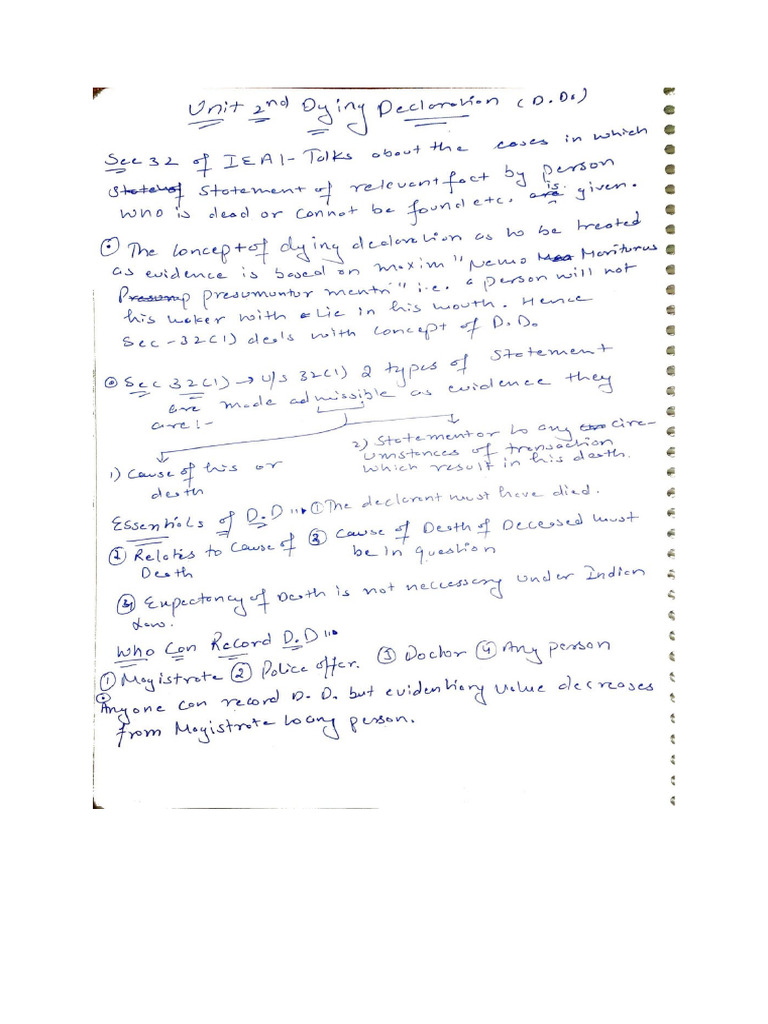 Unit 2nd Dying Declaration (D.Ds)
Sec 32 of IEA!- Talks about the cases in which
Stateof Statement of relevant fact by person
who is dead or cannot be found etc. are is given.
The concept of dying declaration as to be treated
as evidence is based on maxim "Nemo Moriturus
Presump presumuntur mentri" i.e. a person will not
his maker with a lie in his mouth. Hence
Sec-32(1) deals with concept of D.D.
Sec 32(1) → U/s 32(1) 2 types of Statement
are made admissible as evidence they
are!-
1) Cause of his or
death
2) Statement or to any circ-
umstances of transaction
which result in his death.
Essentials of D.D ① The declarent must have died.
② Relates to Cause of Death
③ Cause of Death of Deceased must
be in question
③ Expectancy of Death is not neccessary under Indian
Law.
Who Can Record D.D
① Magistrate ② Police offer. ③ Doctor ④ Any person
Anyone can record D.D. but evidentiary value decreases
from Magistrate to any person.